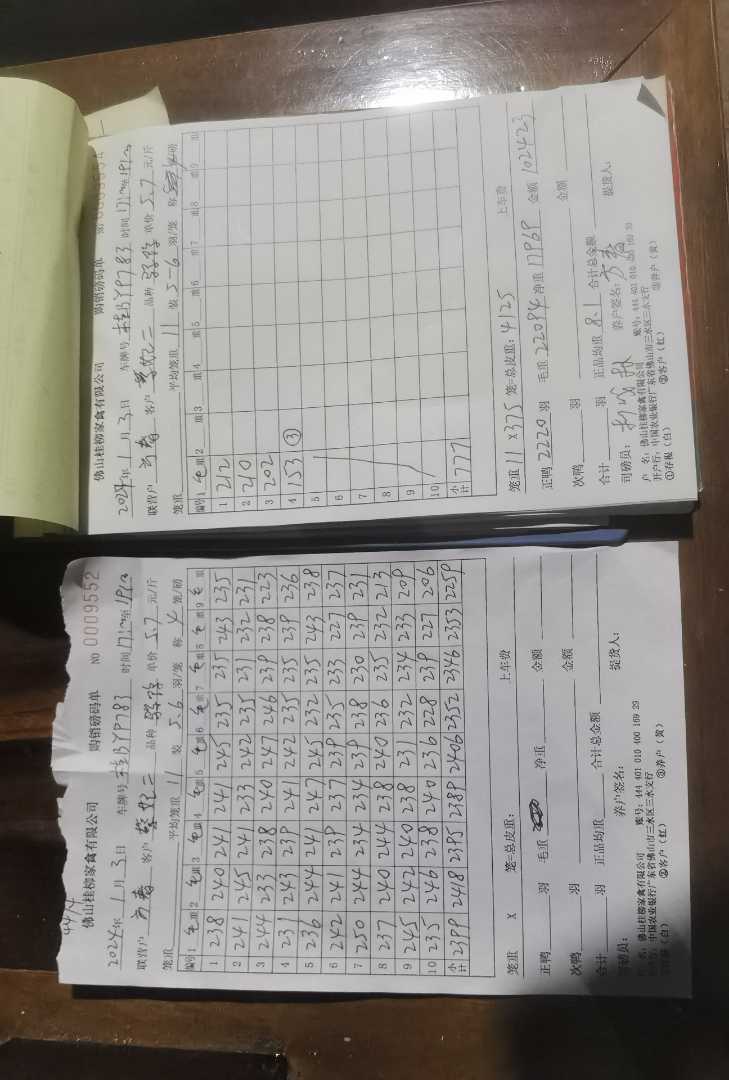 44/4
佛山桂柳家禽有限公司 购销磅码单 NO 0009552
2024年1月3日 车牌号 桂BYP783 时间
联营户 客户 品种 单价 5.7 元/斤
笼重 平均笼重 11 装 5.6 羽/笼 称 4 笼/磅
编号 1 毛重 2 毛重 3 毛重 4 毛重 5 毛重 6 毛重 7 毛重 8 毛重 9 毛重
1 238 240 241 241 245 235 235 243 235
2 241 245 241 233 242 235 231 232 231
3 244 233 238 240 247 246 239 238 223
4 231 243 239 241 242 235 235 239 236
5 236 244 241 247 245 232 235 243 238
6 242 241 239 237 239 235 233 227 237
7 250 244 234 234 239 238 230 239 231
8 237 240 244 238 240 236 235 232 213
9 245 242 240 238 231 232 234 233 209
10 235 246 238 240 236 228 239 227 206
小计 2399 2418 2395 2389 2406 2352 2346 2353 2259
笼重 X 笼=总皮重: 上车费
正鸭 羽 毛重 净重 金额
次鸭 羽 金额
合计 羽 正品均重 合计总金额
司磅员: 养户签名: 提货人:
户 名: 佛山桂柳家禽有限公司 账号: 444 401 010 400 169 29
开户行: 中国农业银行广东省佛山市三水区三水支行
①存根(白) ②客户(红) ③养户(黄)
佛山桂柳家禽有限公司 购销磅码单
2024年1月3日 车牌号 桂BYP783 时间
联营户 客户 品种 单价 5.7 元/斤
笼重 平均笼重 11 装 5-6 羽/笼 称
编号 1 毛重 2 重 3 重 4 重 5 重 6 重 7 重 8 重 9 重
1 212
2 210
3 202
4 153 ③
5
6
7
8
9
10
小计 777
笼重 11 X 375 笼=总皮重: 4125 上车费
正鸭 2220 羽 毛重 22094 净重 17969 金额 102423
次鸭 羽 金额
合计 羽 正品均重 8.1 合计总金额
司磅员: 养户签名: 提货人:
户 名: 佛山桂柳家禽有限公司 账号: 444 401 010 400 169 29
开户行: 中国农业银行广东省佛山市三水区三水支行
①存根(白) ②客户(红) ③养户(黄)